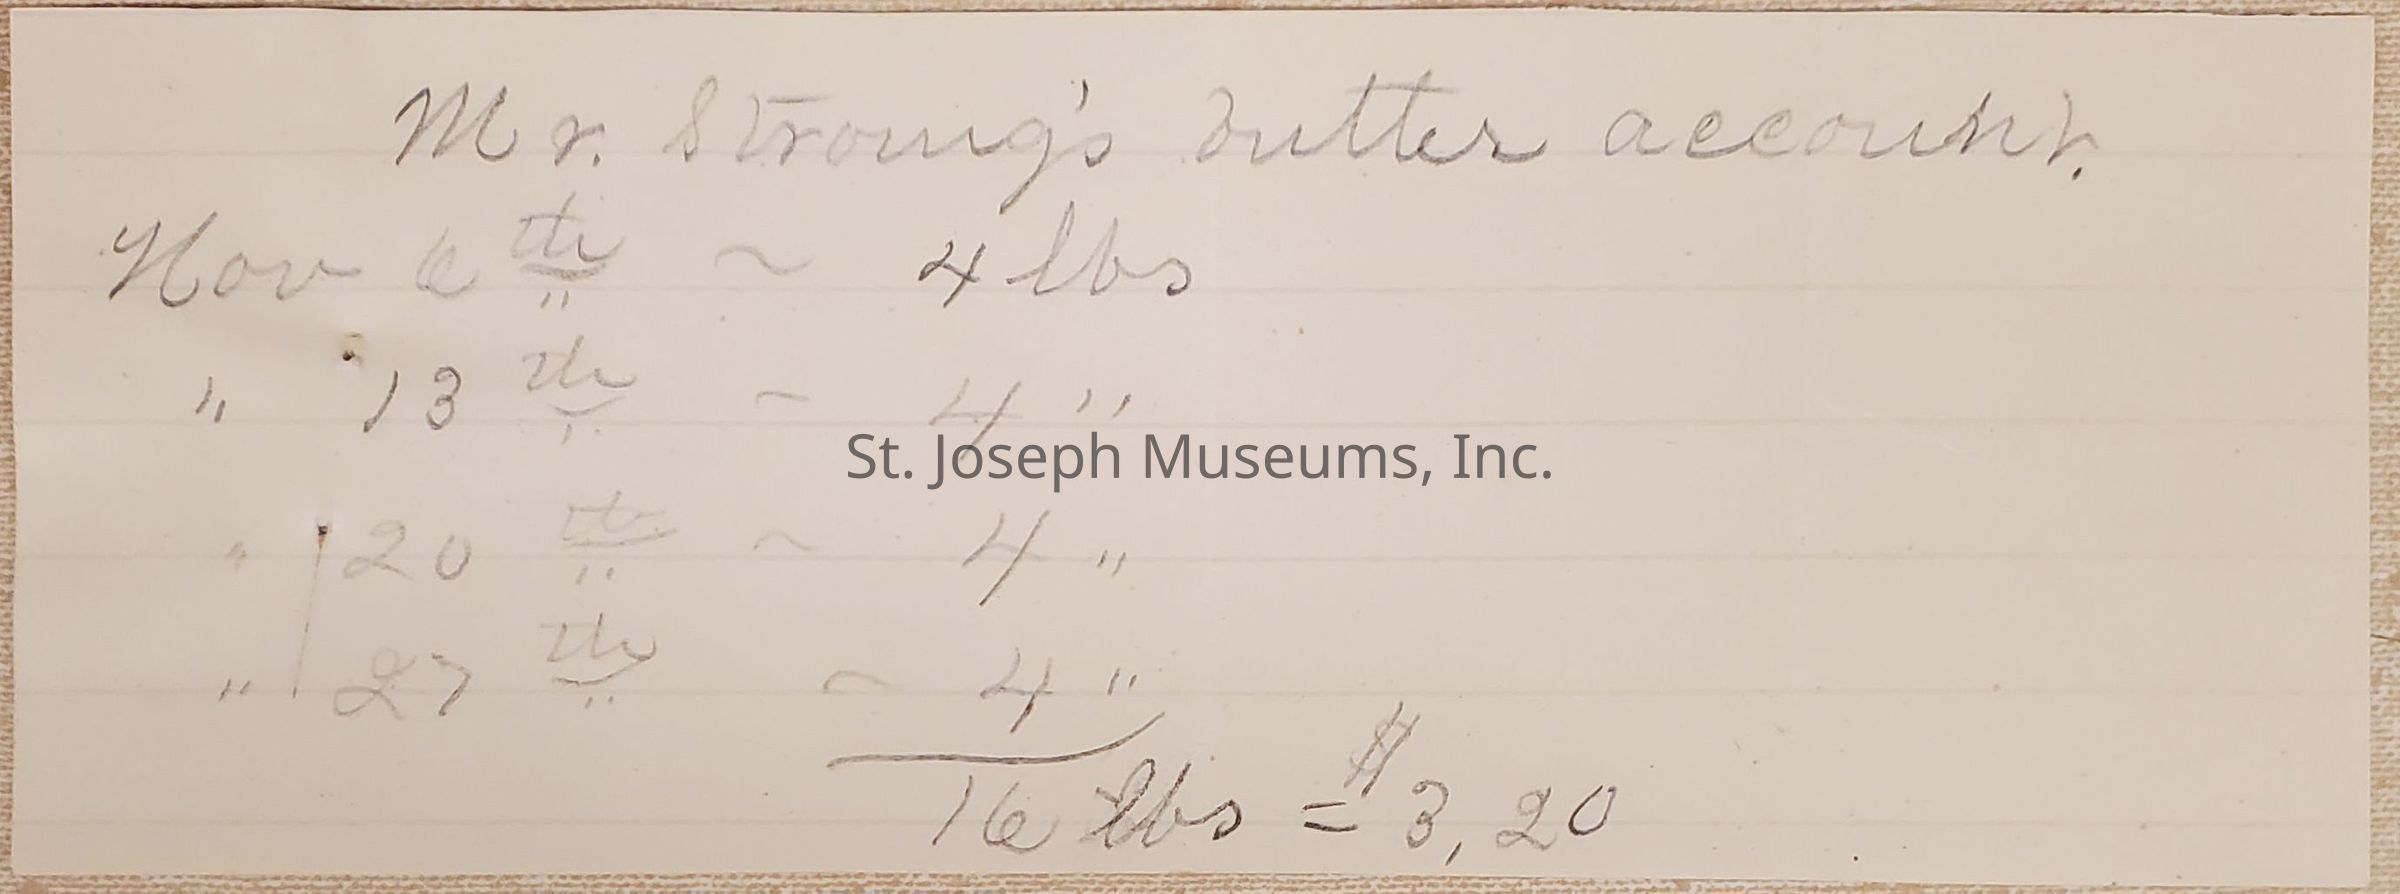 Mr. Strong's butter account.
Nov 6th ~ 4 lbs
" 13th ~ 4 "
St. Joseph Museums, Inc.
" 20th ~ 4 "
" 27th ~ 4 "
16 lbs = $3,20